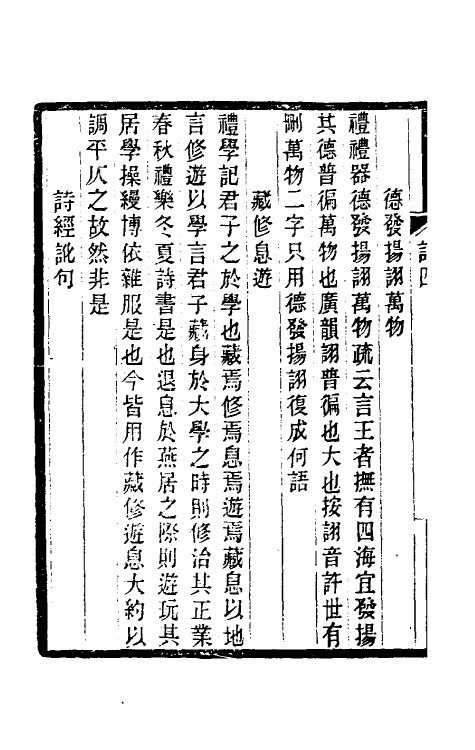 德發揚詡萬物
禮禮器德發揚詡萬物疏云言王者撫有四海宜發揚
其德普徧萬物也廣韻詡普徧也大也按詡音許世有
刪萬物二字只用德發揚詡復成何語
藏修息遊
禮學記君子之於學也藏焉修焉息焉遊焉藏息以地
言修遊以學言君子藏身於大學之時則修治其正業
春秋禮樂冬夏詩書是也退息於燕居之際則遊玩其
居學操縵博依雜服是也今皆用作藏修遊息大約以
調平仄之故然非是
詩經訛句